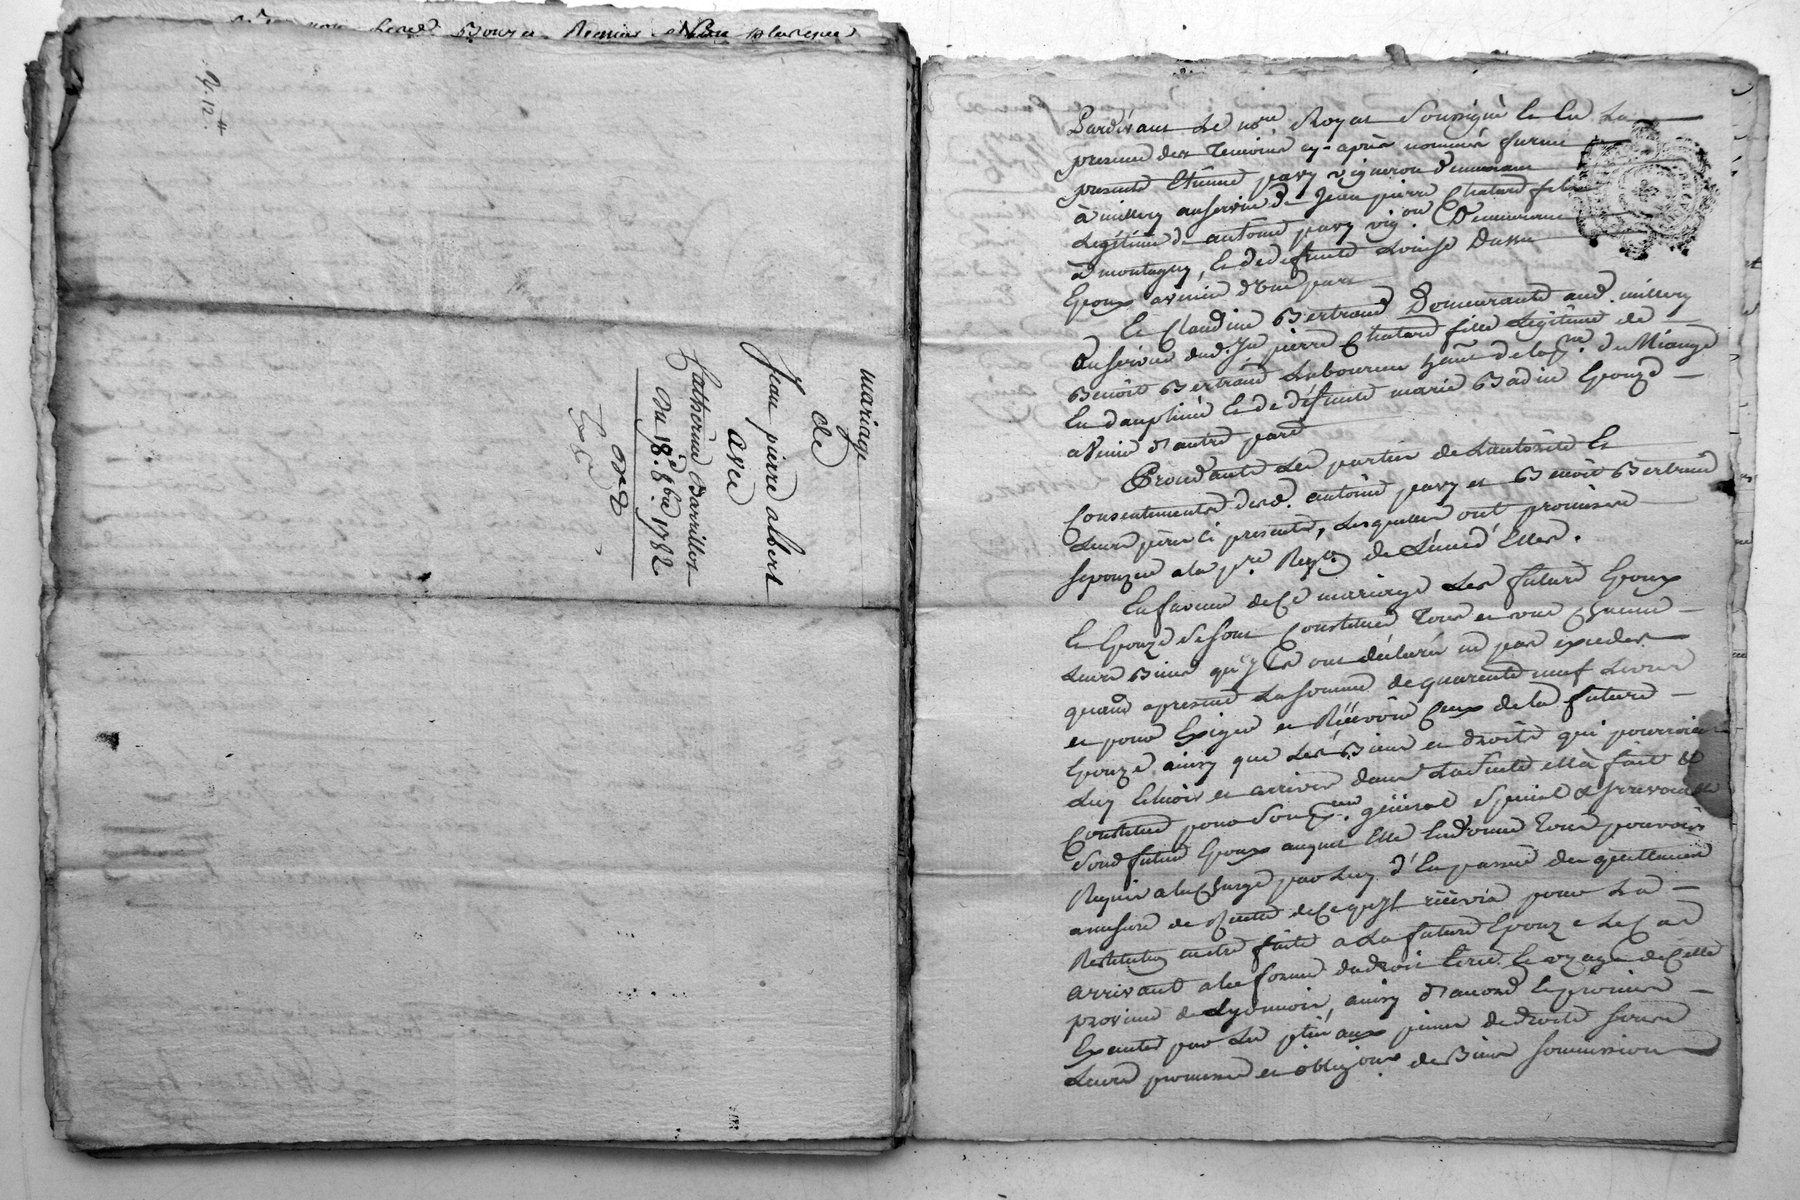 mariage
de
Jean pierre albert
avec
Catherine Barrillon
du 18.e 8bre 1782
Pardevant Le nore Royal Soussigné Et En La
presence des temoins cy-après nommés furent
presents Etienne pavy vigneron demeurant
à millery au service de Jean pierre Chatard fils
Legitime de antoine pavy vigon Demeurant
à montagny, Et de defunte Louise
Epoux avenir d'une part
Et Claudine Bertrand Demeurante aud. millery
au service dud. Jn pierre Chatard fille Legitime de
Benoit Bertrand Laboureur hant de la du Miange
En dauphiné Et de défunte marie Badin Epouze
avenir d'autre part
Procedants Les parties de Lautorité Et
Consentements desd. antoine pavy et Benoit Bertrand
Leurs peres ci presents, Lesquelles ont promis de
sepouzer a la pre Reqon de L'une d'Elles.
En faveur de Ce mariage Les futurs Epoux
Et Epouze se sont Constitués tous et un Chacun
Leurs Biens qu'ils ont déclaré ne pas exceder
quand apresent La somme de quarente neuf Livres
et pour Exiger et Recevoir Ceux de la future
Epouze ainsy que Les Biens et droits qui pourroient
Luy Echoir et arriver dans La suite ella fait &
Constitué pour Son general special & irrevocable
Sond futur Epoux auquel Elle En donne tous pouvoirs
Requis a la Charge par Luy d'En passer des quittances
amesure de Recette de Ce qu'il recevra pour La
Restitution Enetre faite a La future Epouze Le Cas
arrivant a la forme du droit Ecrit Et uzage de Cette
province de Lyonnois, ainsy d'accord Et promis
Executer par Les pties aux peines de droits sous
Leurs promesses et obligons de Biens soumissions